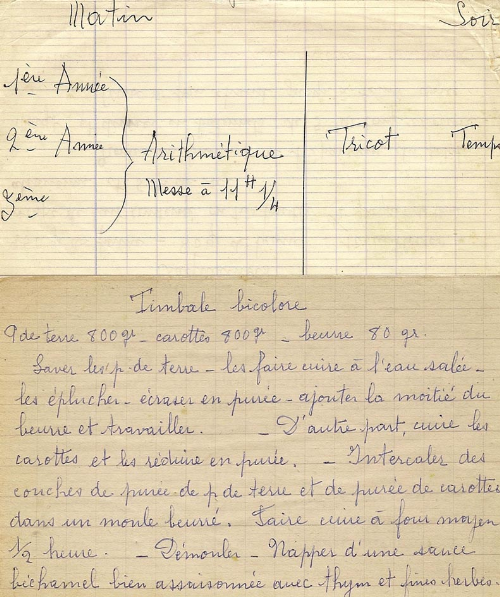 Matin Soir
1ère Année
2ème Année Arithmétique Tricot Temps
3ème Messe à 11H 1/4
Timbale bicolore
P de terre 800 gr - carottes 800 gr - beurre 80 gr.
Laver les p. de terre - les faire cuire à l'eau salée -
les éplucher - écraser en purée - ajouter la moitié du
beurre et travailler. - D'autre part, cuire les
carottes et les réduire en purée. - Intercaler des
couches de purée de p de terre et de purée de carottes
dans un moule beurré. Faire cuire à four moyen
1/2 heure. - Démouler - Napper d'une sauce
béchamel bien assaisonnée avec thym et fines herbes.